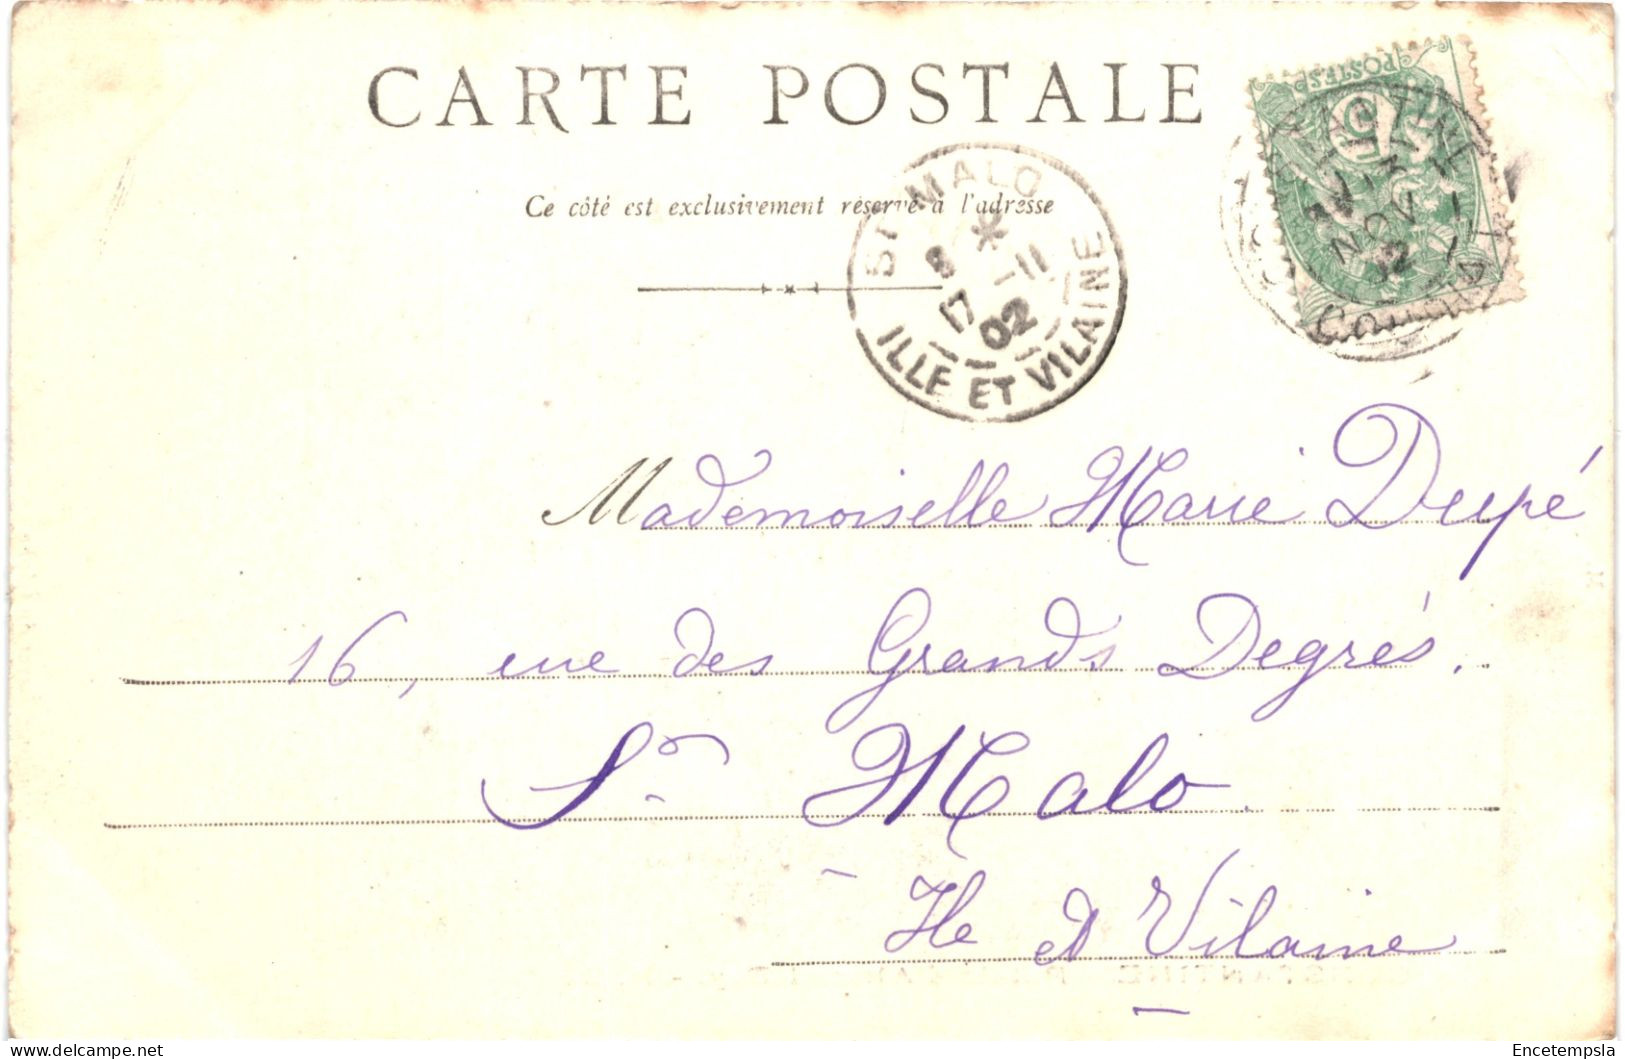 CARTE POSTALE
Ce côté est exclusivement réservé à l'adresse
POSTES
5
NOV
02
ST MALO
8 * -11
17 02
ILLE ET VILAINE
Mademoiselle Marie Dupé
16, rue des Grands Degrés.
St Malo
- Ile et Vilaine
-
Encetempsla